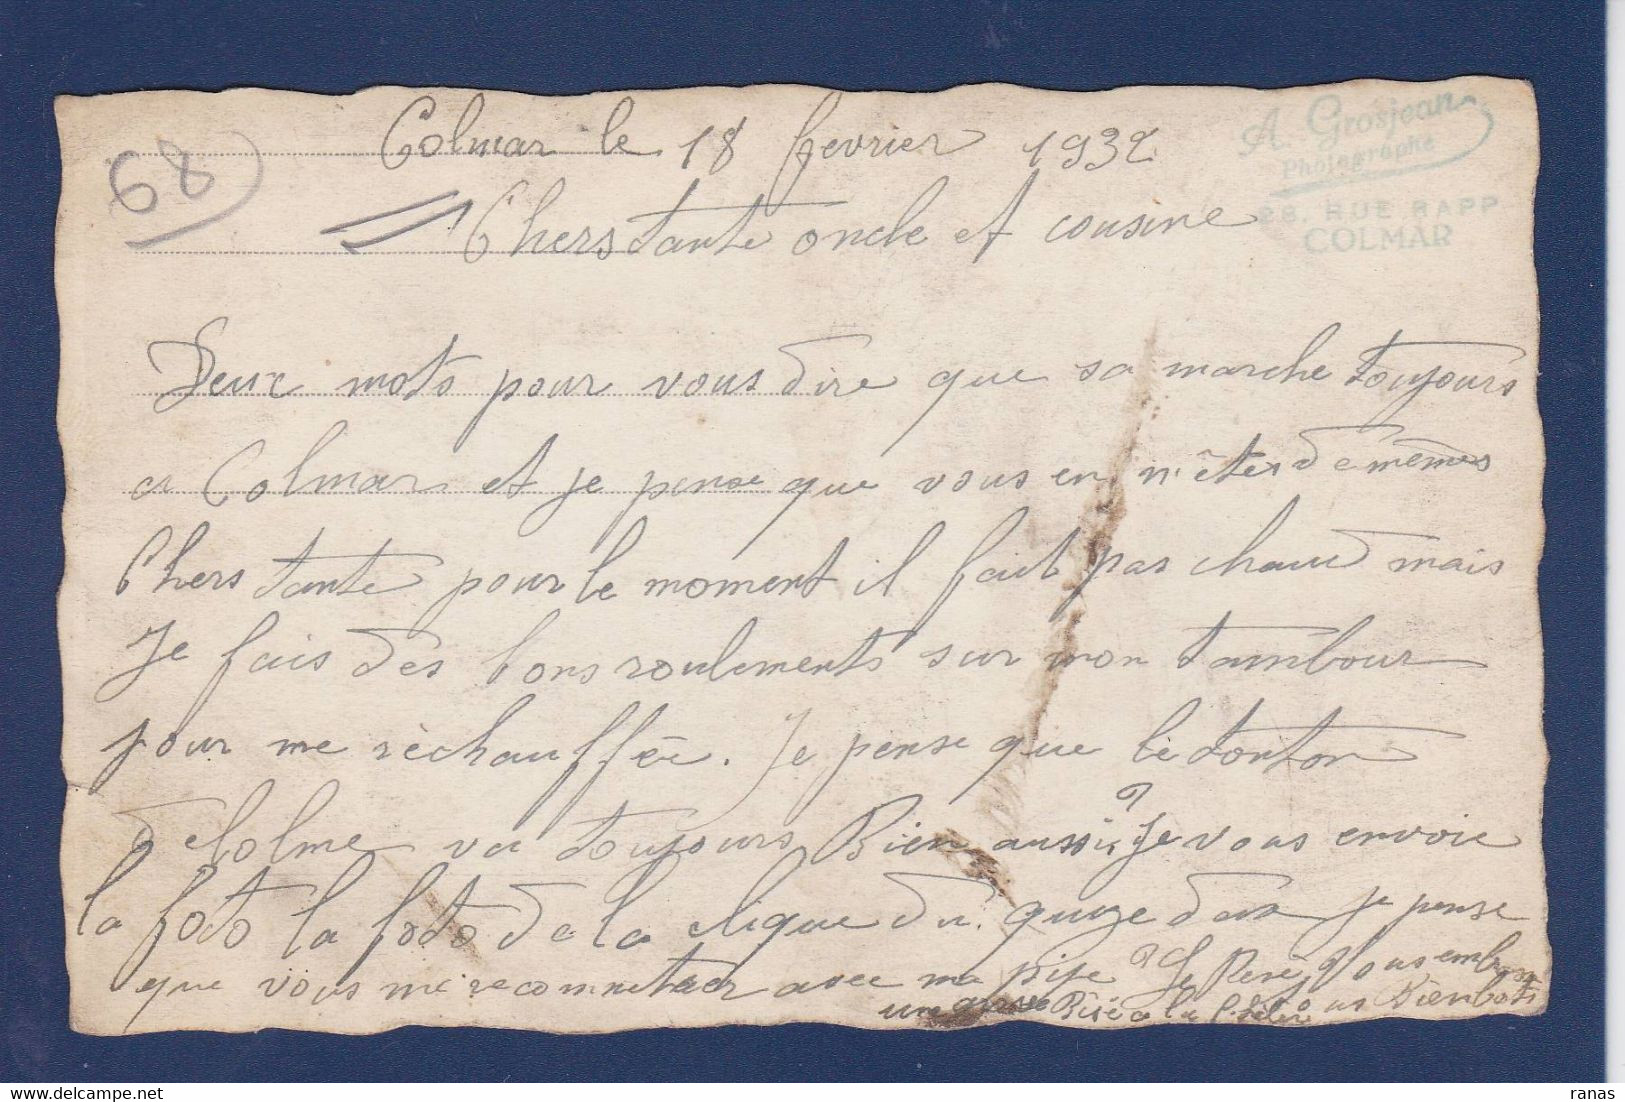 68
Colmar le 18 fevrier 1932
A. Grosjean
Photographe
28, RUE RAPP
COLMAR
Chers tante oncle et cousine
Deux mots pour vous dire que sa marche toujours
a Colmar et je pense que vous en n'êtes de mêmes
Chers tante pour le moment il fait pas chaud mais
Je fais des bons roulements sur mon tambour
pour me rechauffée. Je pense que le tonton
va toujours Bien aussi? Je vous envoie
la foto la foto de la clique du quinze dans je pense
que vous me reconnaitrer avec ma pipe? Je Vous
une grosse Bise a la
ranas